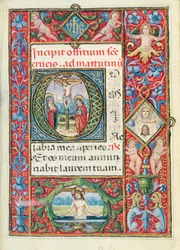 yhs
Incipit offitium scē
crucis. ad matutinū
D
labia mea aperies
Et os meum annun
tiabit laudem tuam.